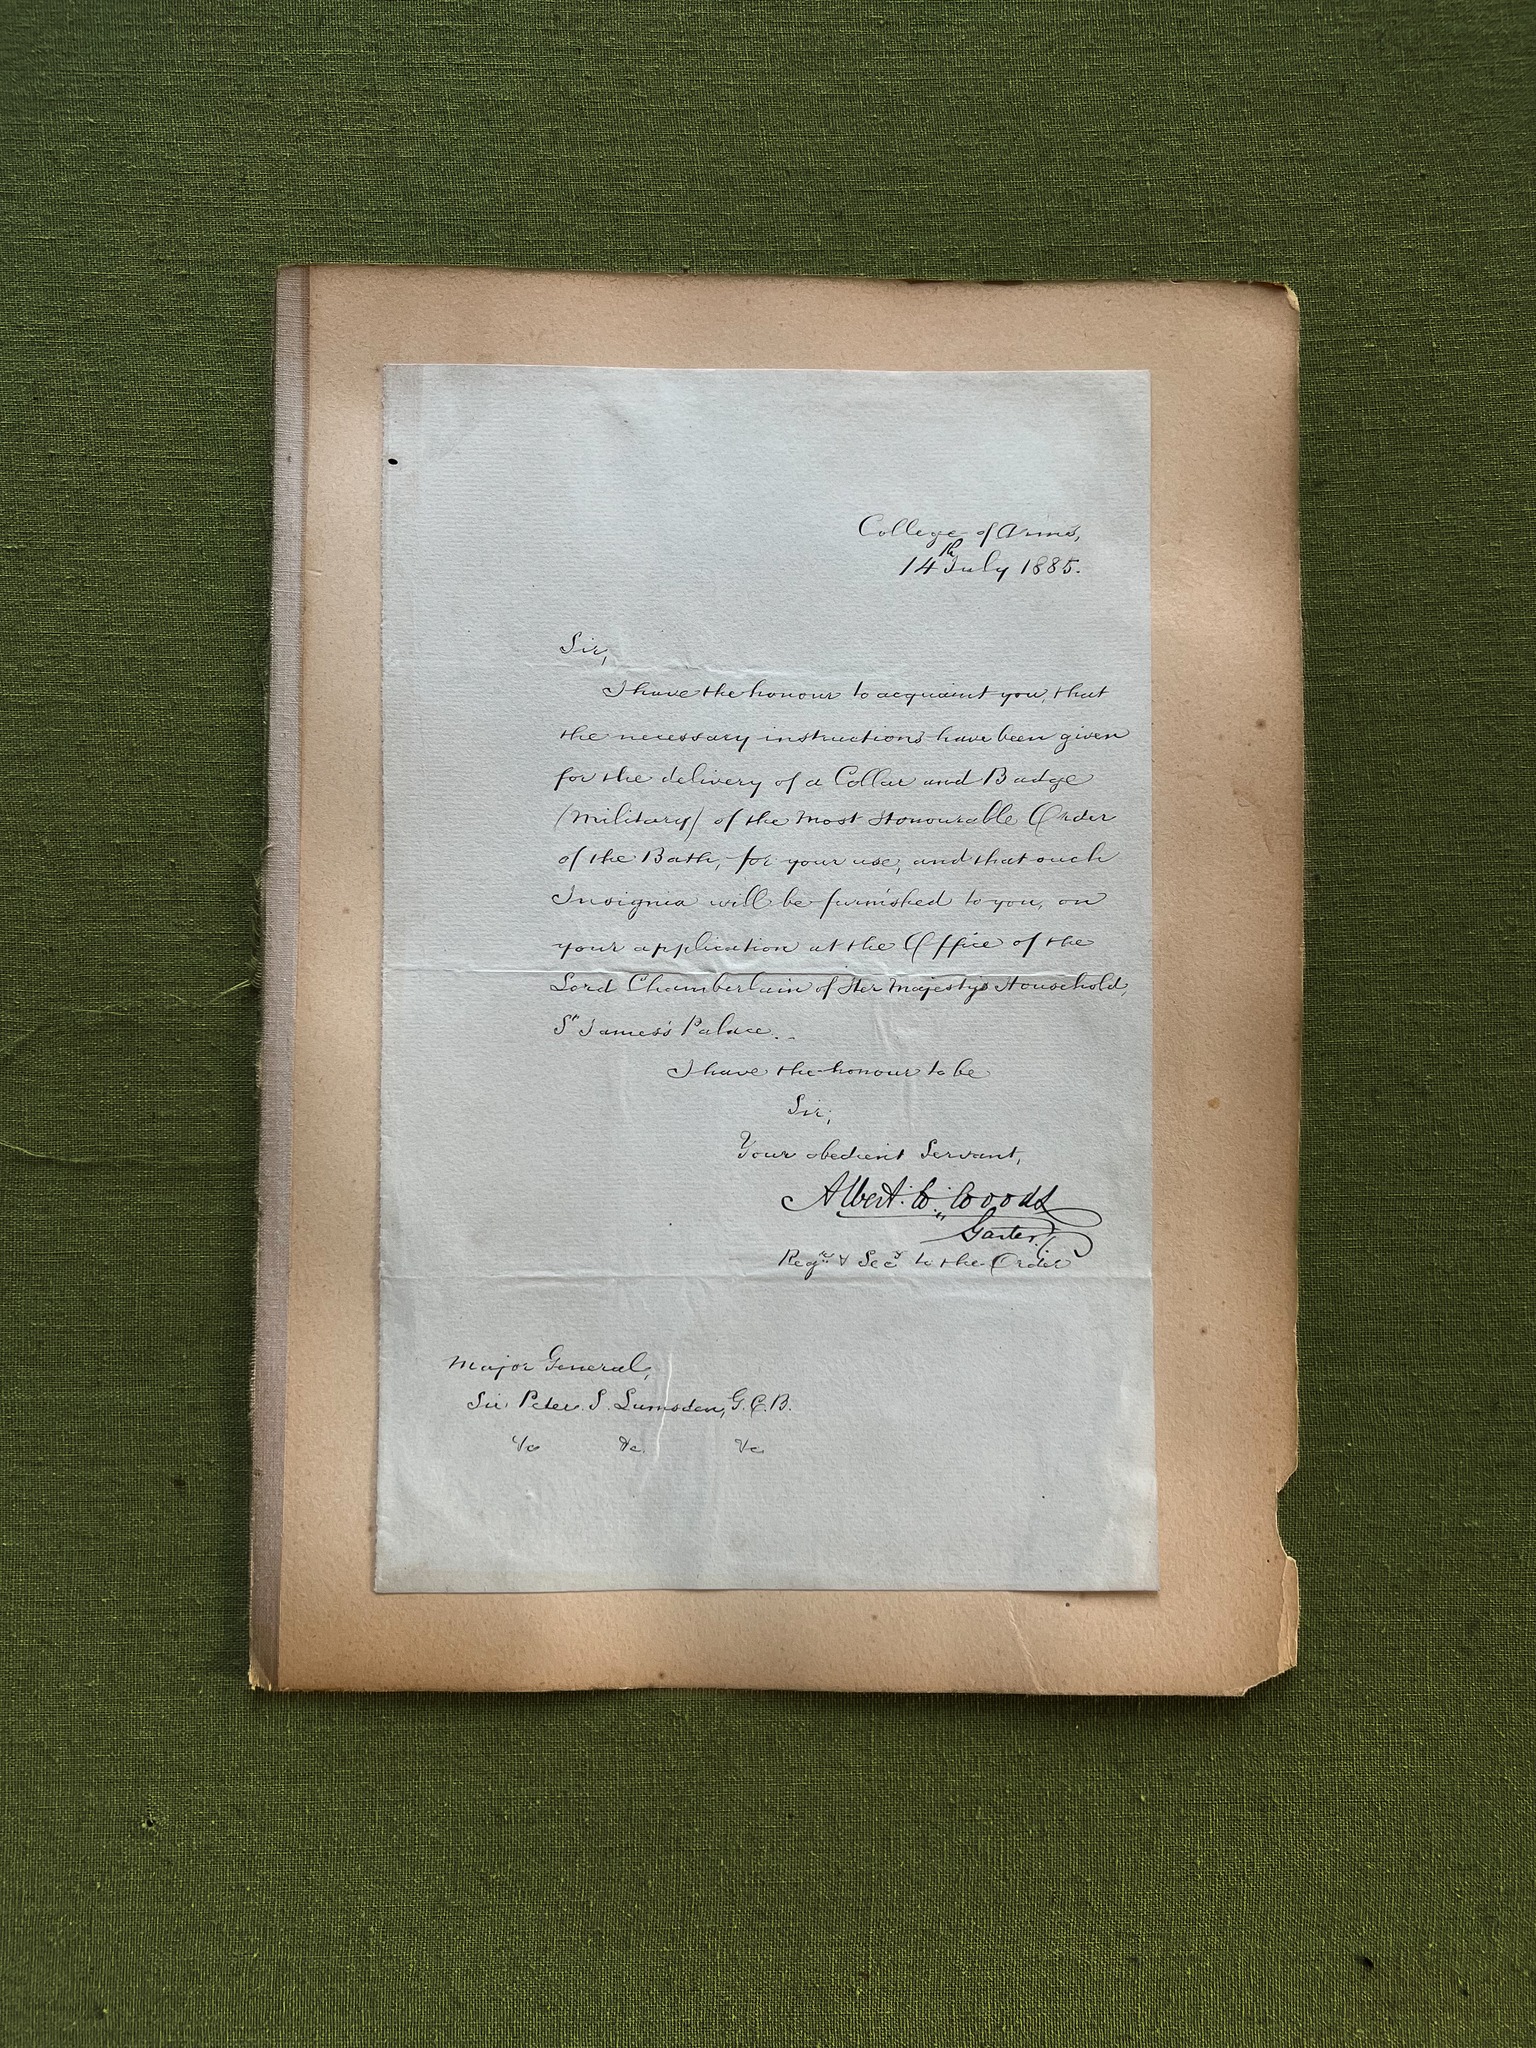 College of Arms,
14th July 1885.
Sir,
I have the honour to acquaint you, that
the necessary instructions have been given
for the delivery of a Collar and Badge
(Military) of the Most Honourable Order
of the Bath, for your use, and that such
Insignia will be furnished to you, on
your application at the Office of the
Lord Chamberlain of Her Majesty's Household,
St James's Palace..
I have the honour to be
Sir,
Your obedient Servant,
Albert W. Woods
Garter
Regr & Secy to the Order
Major General,
Sir Peter S. Lumsden, G.C.B.
&c &c. &c